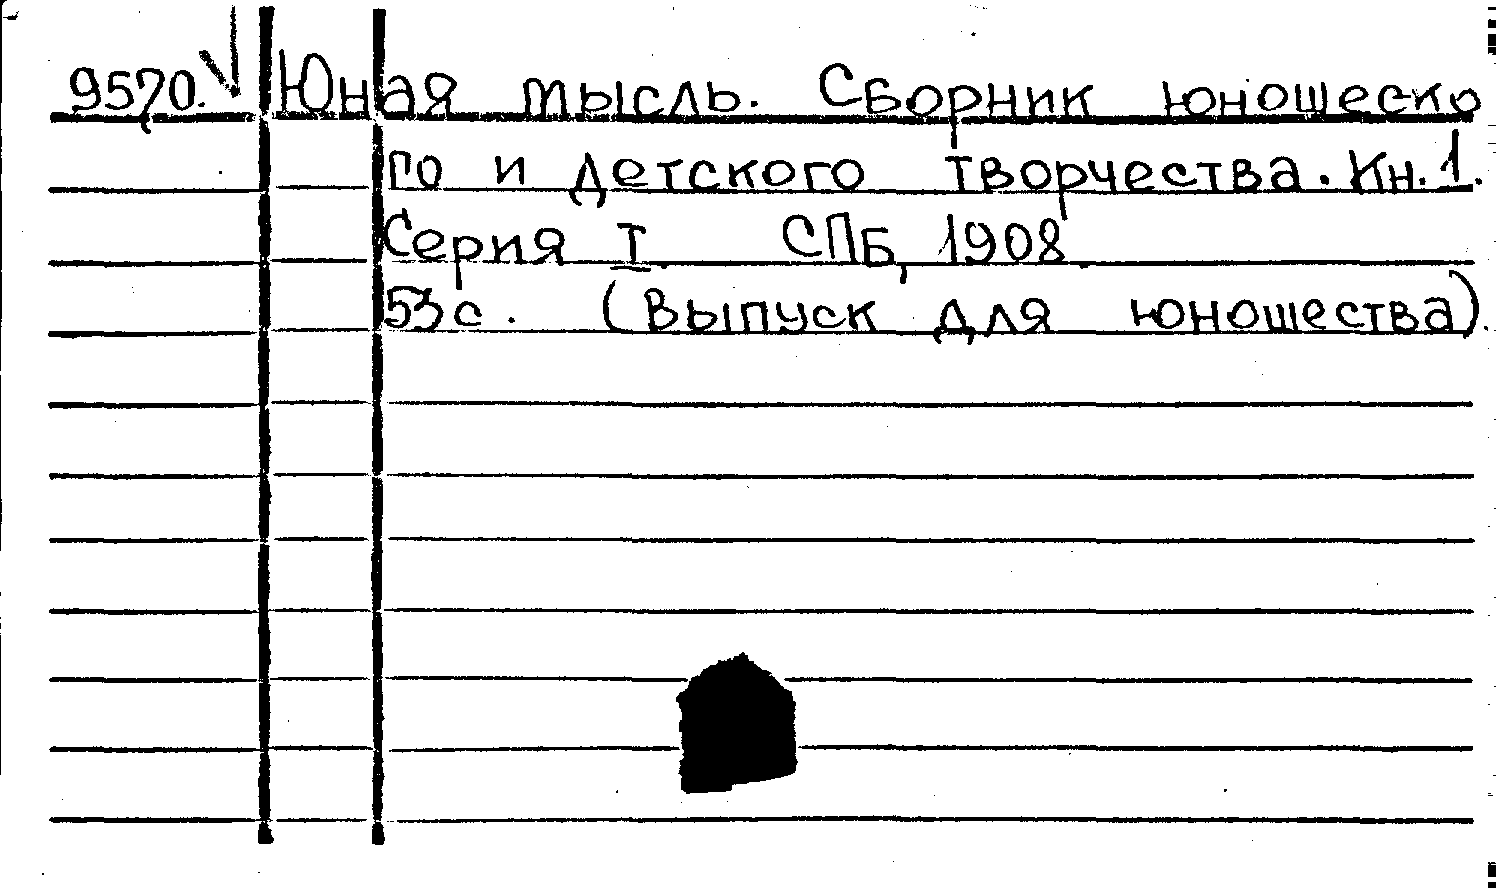 9570. Юная мысль. Сборник юношеско
го и детского творчества. Кн. 1.
Серия I СПБ, 1908
53 с. (Выпуск для юношества).